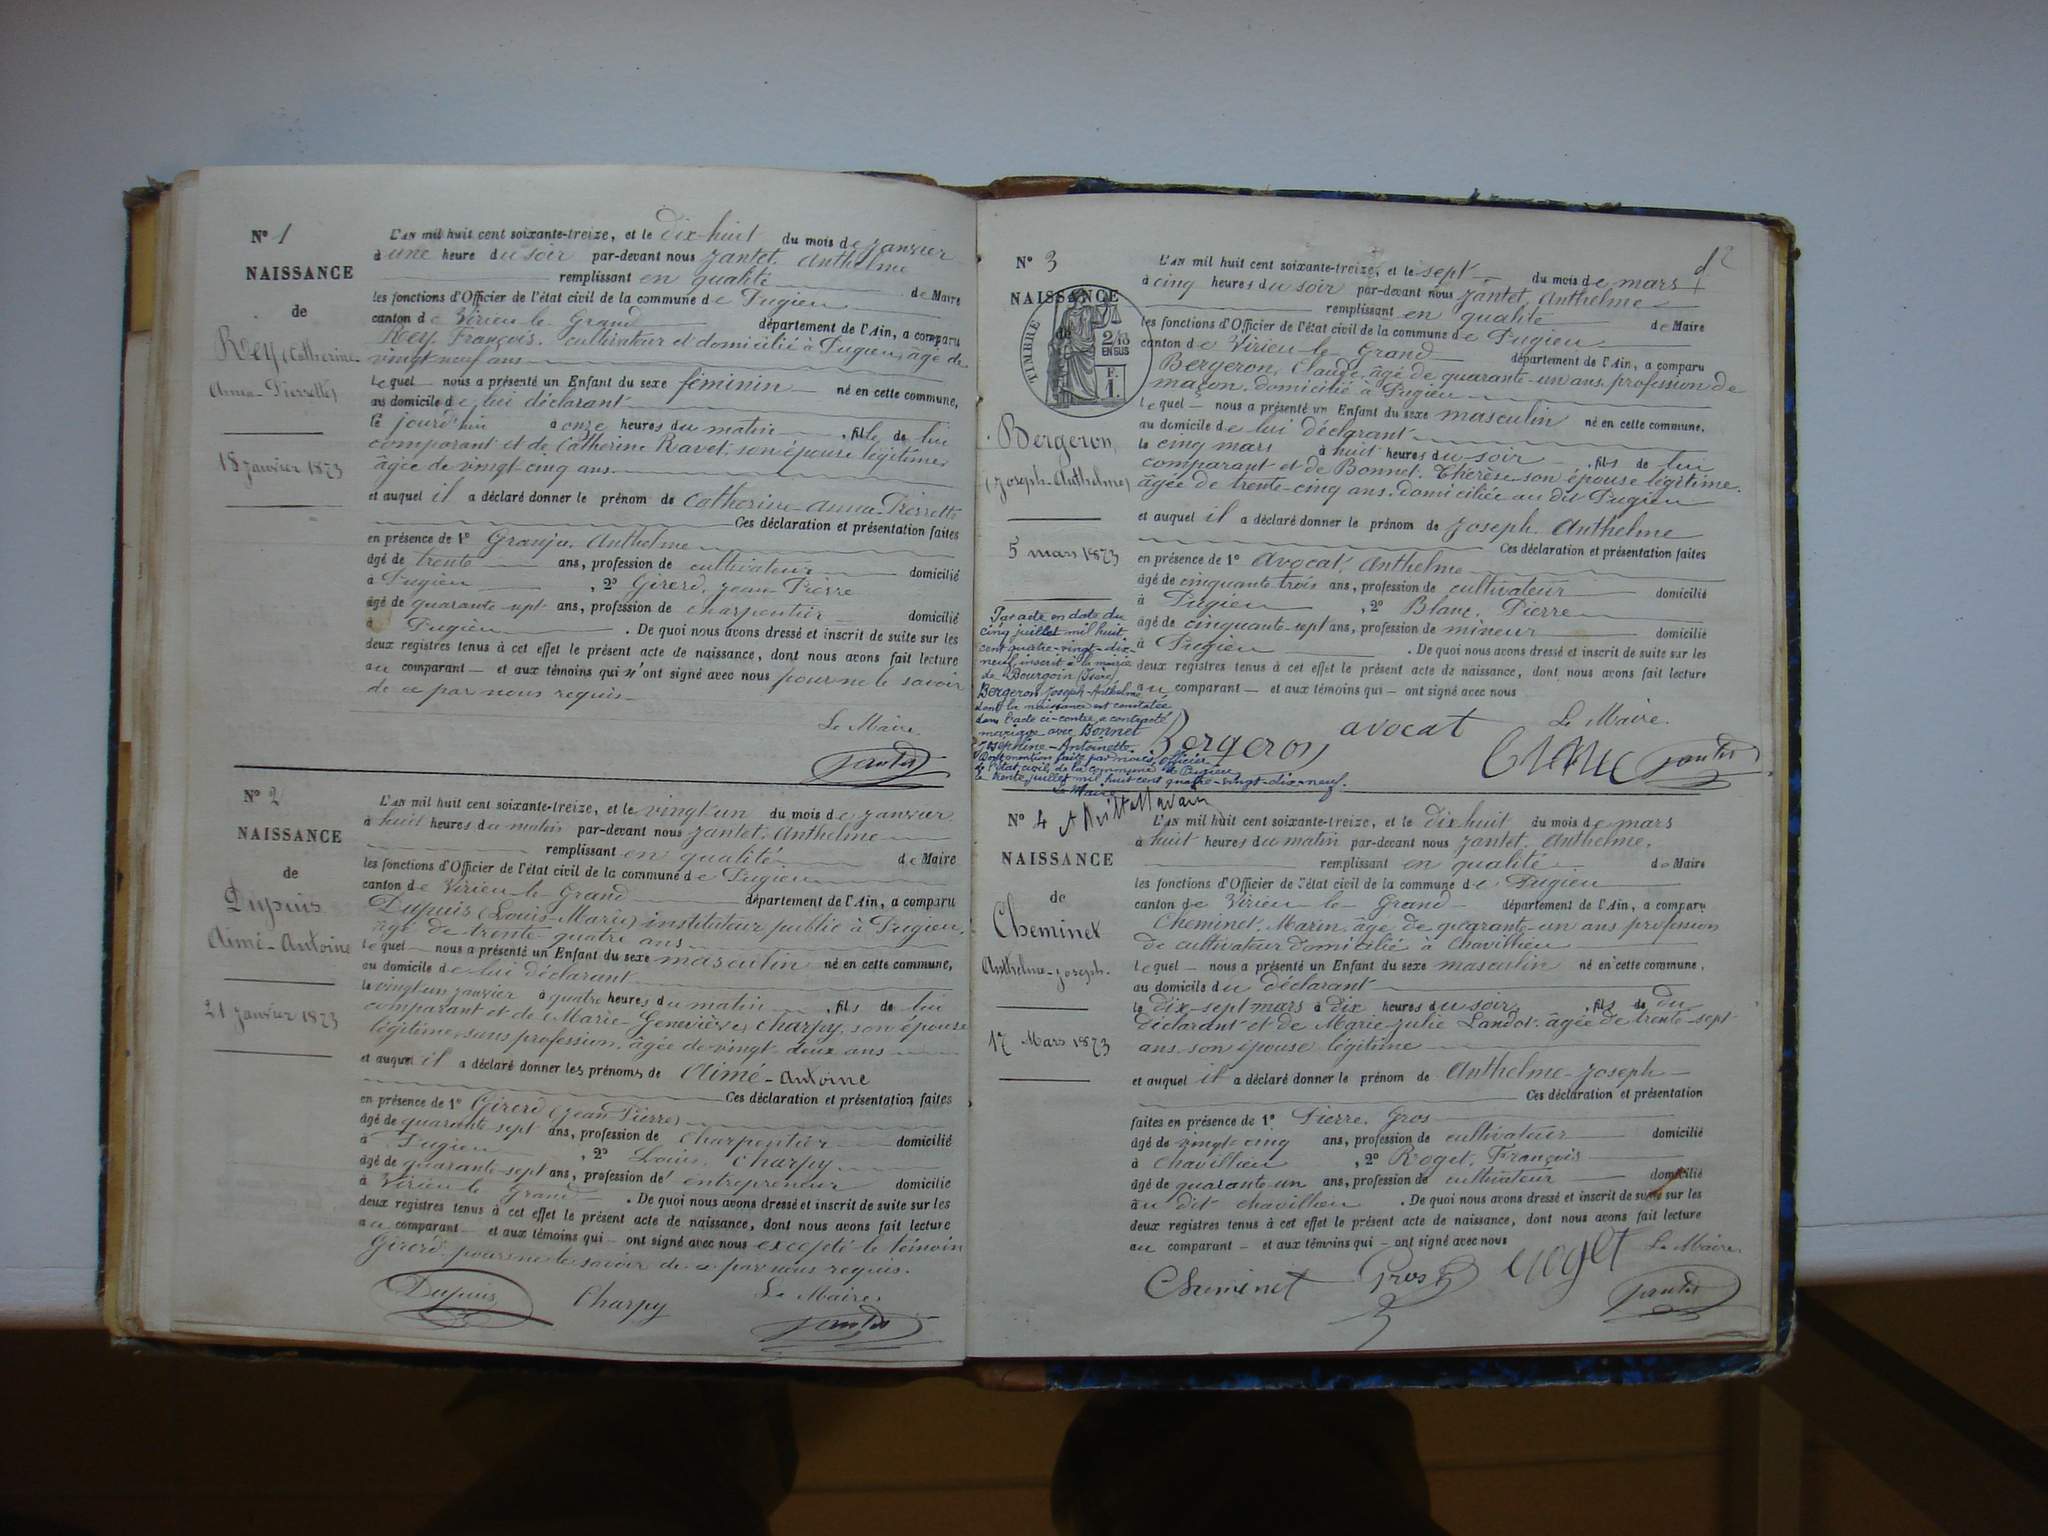 N° 1
NAISSANCE
de
Rey (Catherine
Anna-Pierrette)
18 janvier 1873
L'AN mil huit cent soixante-treize, et le dix-huit du mois de janvier
à une heure du soir par-devant nous Jantet, Anthelme
remplissant en qualité de Maire
les fonctions d'Officier de l'état civil de la commune de Pugieu
canton de Virieu-le-Grand département de l'Ain, a comparu
Rey, François, cultivateur et domicilié à Pugieu, âgé de
vingt-neuf ans
lequel nous a présenté un Enfant du sexe féminin né en cette commune,
au domicile de lui déclarant
ce jourd'hui à onze heures du matin, fille de lui
comparant et de Catherine Ravet, son épouse légitime,
âgée de vingt-cinq ans
et auquel il a déclaré donner le prénom de Catherine-Anna-Pierrette
Ces déclaration et présentation faites
en présence de 1° Granju, Anthelme
âgé de trente ans, profession de cultivateur domicilié
à Pugieu, 2° Girerd, Jean-Pierre
âgé de quarante-sept ans, profession de charpentier domicilié
à Pugieu. De quoi nous avons dressé et inscrit de suite sur les
deux registres tenus à cet effet le présent acte de naissance, dont nous avons fait lecture
au comparant — et aux témoins qui n'ont signé avec nous pour ne le savoir
de ce par nous requis
Le Maire
Jantet
N° 2
NAISSANCE
de
Dupuis
Aimé-Antoine
21 janvier 1873
L'AN mil huit cent soixante-treize, et le vingt-un du mois de janvier
à huit heures du matin par-devant nous Jantet, Anthelme
remplissant en qualité de Maire
les fonctions d'Officier de l'état civil de la commune de Pugieu
canton de Virieu-le-Grand département de l'Ain, a comparu
Dupuis (Louis-Marie) instituteur public à Pugieu,
âgé de trente-quatre ans
lequel nous a présenté un Enfant du sexe masculin né en cette commune,
au domicile de lui déclarant
le vingt un janvier à quatre heures du matin, fils de lui
comparant et de Marie-Geneviève, Charpy, son épouse
légitime, sans profession, âgée de vingt-deux ans
et auquel il a déclaré donner les prénoms de Aimé-Antoine
Ces déclaration et présentation faites
en présence de 1° Girerd (Jean-Pierre)
âgé de quarante-sept ans, profession de charpentier domicilié
à Pugieu, 2° Louis, Charpy
âgé de quarante-sept ans, profession d'entrepreneur domicilié
à Virieu-le-Grand. De quoi nous avons dressé et inscrit de suite sur les
deux registres tenus à cet effet le présent acte de naissance, dont nous avons fait lecture
au comparant — et aux témoins qui — ont signé avec nous excepté le témoin
Girerd pour ne le savoir de ce par nous requis.
Dupuis Charpy Le Maire
Jantet
12
N° 3
NAISSANCE
de
TIMBRE
2/10
EN SUS
F.
1.
Bergeron,
(Joseph-Anthelme)
5 mars 1873
Par acte en date du
cinq juillet mil huit
cent quatre-vingt-dix-
neuf, inscrit à la mairie
de Bourgoin (Isère)
Bergeron Joseph-Anthelme
dont la naissance est constatée
dans l'acte ci-contre, a contracté
mariage avec Bonnet
Joséphine-Antoinette.
Dont mention faite par nous, officier
de l'état civil de la commune de Pugieu
le trente juillet mil huit cent quatre-vingt-dix-neuf.
Le Maire
L'AN mil huit cent soixante-treize, et le sept du mois de mars
à cinq heures du soir par-devant nous Jantet, Anthelme
remplissant en qualité de Maire
les fonctions d'Officier de l'état civil de la commune de Pugieu
canton de Virieu-le-Grand département de l'Ain, a comparu
Bergeron, Claude, âgé de quarante-un ans, profession de
maçon, domicilié à Pugieu
lequel — nous a présenté un Enfant du sexe masculin né en cette commune.
au domicile de lui déclarant
le cinq mars à huit heures du soir, fils de lui
comparant et de Bonnet, Thérèse son épouse légitime.
âgée de trente-cinq ans, domiciliée au dit Pugieu
et auquel il a déclaré donner le prénom de Joseph, Anthelme
Ces déclaration et présentation faites
en présence de 1° Avocat, Anthelme
âgé de cinquante trois ans, profession de cultivateur domicilié
à Pugieu, 2° Blanc, Pierre
âgé de cinquante-sept ans, profession de mineur domicilié
à Pugieu. De quoi nous avons dressé et inscrit de suite sur les
deux registres tenus à cet effet le présent acte de naissance, dont nous avons fait lecture
au comparant — et aux témoins qui — ont signé avec nous
Bergeron avocat Le Maire.
Blanc Jantet
N° 4
NAISSANCE
de
Cheminet
Anthelme-Joseph.
17 Mars 1873
L'AN mil huit cent soixante-treize, et le dix-huit du mois de mars
à huit heures du matin par-devant nous Jantet, Anthelme,
remplissant en qualité de Maire
les fonctions d'Officier de l'état civil de la commune de Pugieu
canton de Virieu-le-Grand département de l'Ain, a comparu
Cheminet, Marin, âgé de quarante-un ans profession
de cultivateur domicilié à Chavillieu
lequel — nous a présenté un Enfant du sexe masculin né en cette commune,
au domicile du déclarant
le dix-sept mars à dix heures du soir, fils de du
déclarant et de Marie-Julie Landot, âgée de trente-sept
ans, son épouse légitime
et auquel il a déclaré donner le prénom de Anthelme-Joseph
Ces déclaration et présentation
faites en présence de 1° Pierre, Gros
âgé de vingt-cinq ans, profession de cultivateur domicilié
à Chavillieu, 2° Roget, François
âgé de quarante-un ans, profession de cultivateur domicilié
au dit Chavillieu. De quoi nous avons dressé et inscrit de suite sur les
deux registres tenus à cet effet le présent acte de naissance, dont nous avons fait lecture
au comparant — et aux témoins qui — ont signé avec nous
Cheminet Gros Roget Le Maire
Jantet